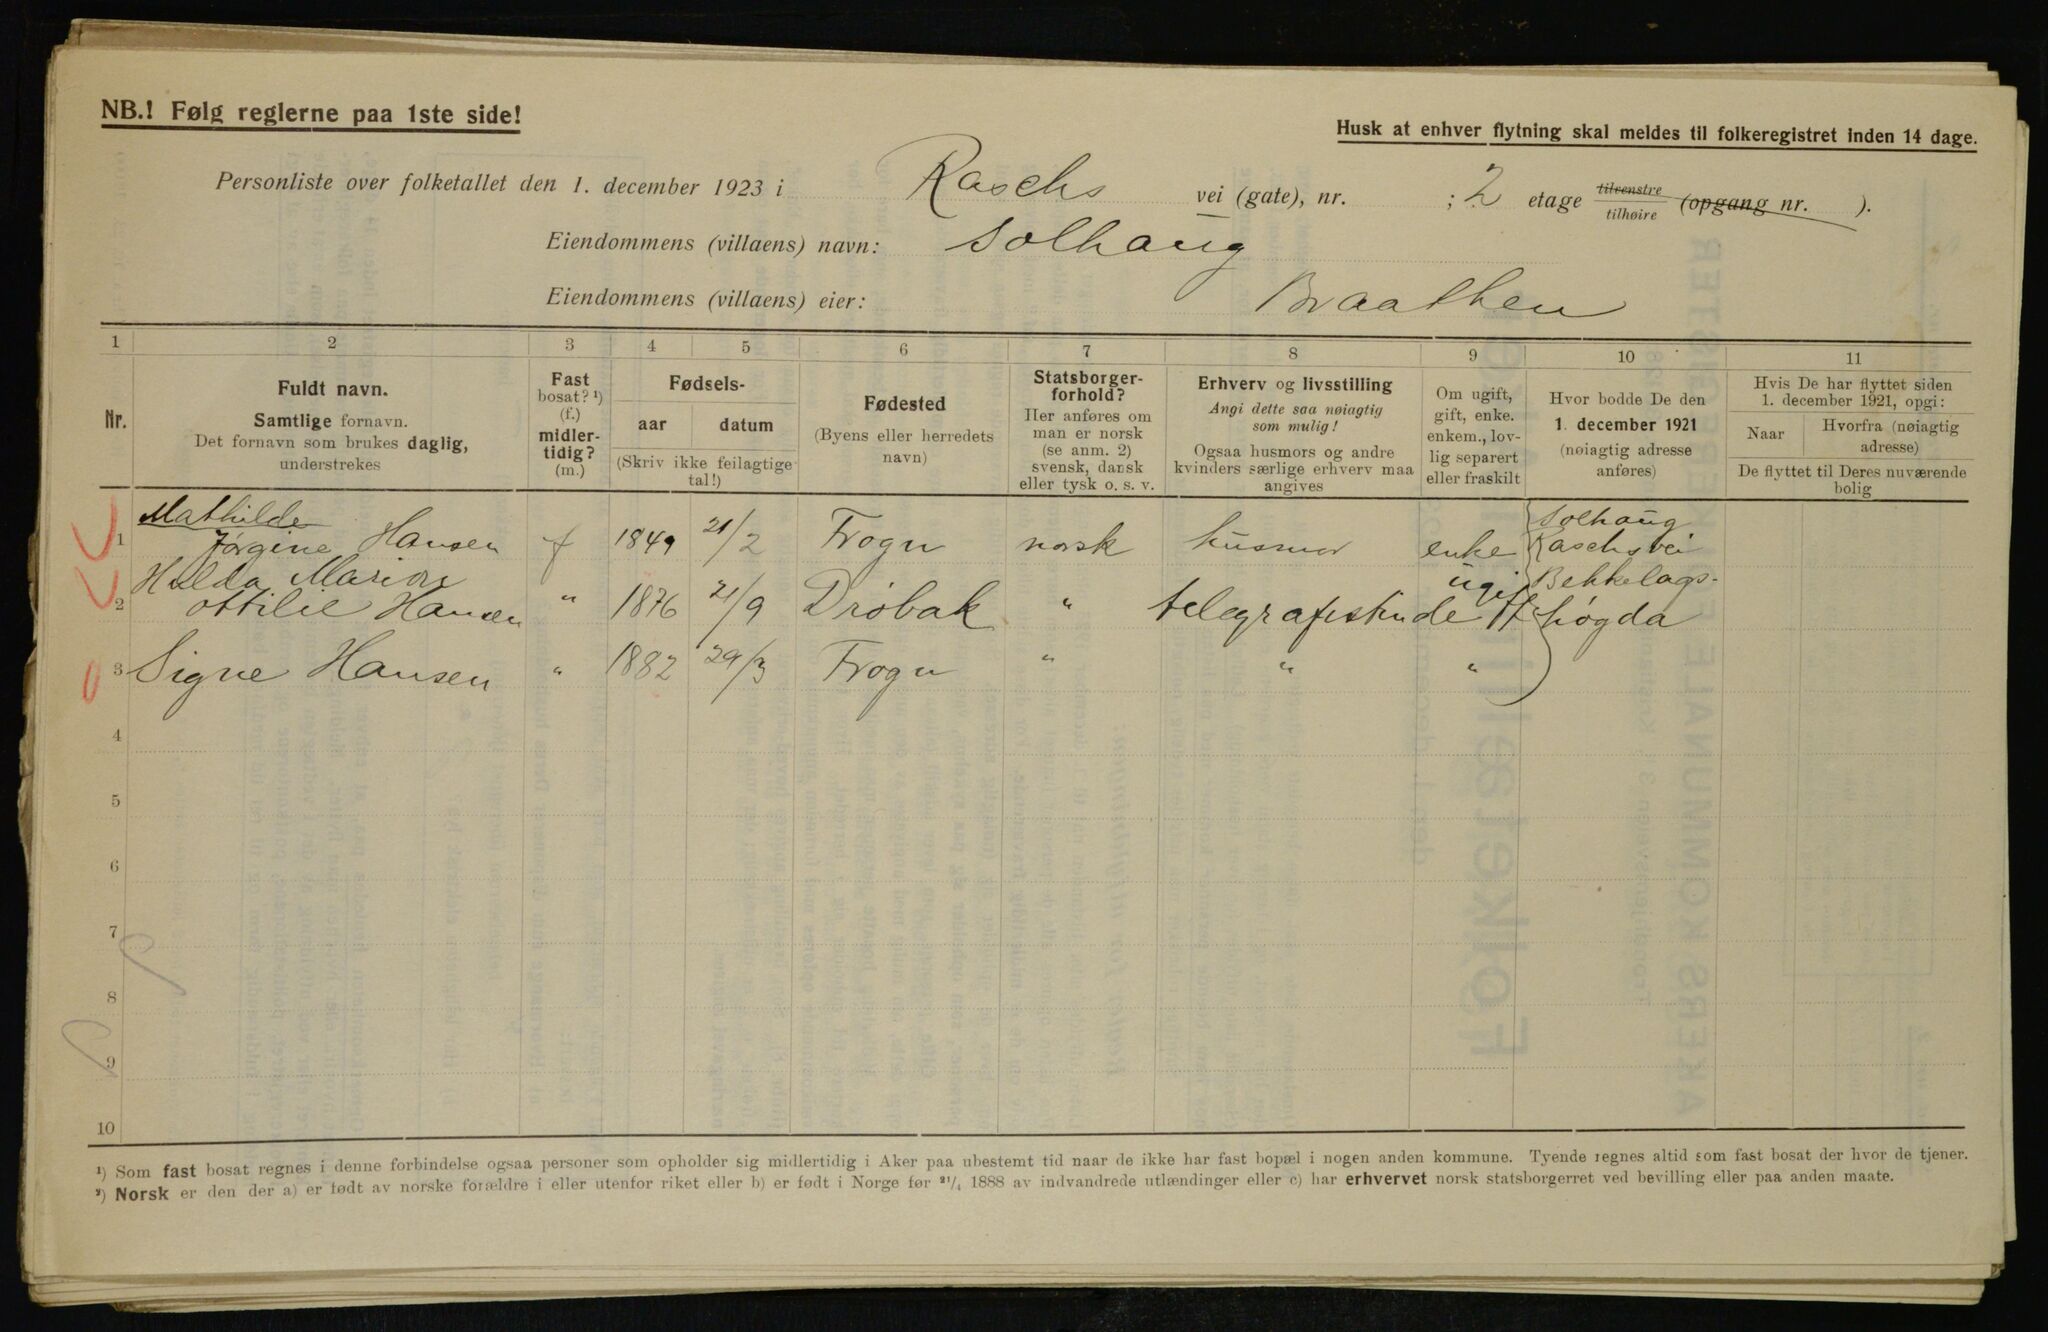 NB.! Følg reglerne paa 1ste side!
Husk at enhver flytning skal meldes til folkeregistret inden 14 dage.
Personliste over folketallet den 1. december 1923 i Raschs vei (gate), nr. ; 2 etage tilvenstre tilhøire (opgang nr. ).
Eiendommens (villaens) navn: Solhaug
Eiendommens (villaens) eier: Braathen
1 2 3 4 5 6 7 8 9 10 11
Nr.
Fuldt navn.
Samtlige fornavn.
Det fornavn som brukes daglig,
understrekes
Fast
bosat? ¹)
(f.)
midler-
tidig?
(m.)
Fødsels-
aar datum
(Skriv ikke feilagtige
tal!)
Fødested
(Byens eller herredets
navn)
Statsborger-
forhold?
Her anføres om
man er norsk
(se anm. 2)
svensk, dansk
eller tysk o. s. v.
Erhverv og livsstilling
Angi dette saa nøiagtig
som mulig!
Ogsaa husmors og andre
kvinders særlige erhverv maa
angives
Om ugift,
gift, enke.
enkem., lov-
lig separert
eller fraskilt
Hvor bodde De den
1. december 1921
(nøiagtig adresse
anføres)
Hvis De har flyttet siden
1. december 1921, opgi:
Naar
Hvorfra (nøiagtig
adresse)
De flyttet til Deres nuværende
bolig
1 Mathilde
Jørgine Hansen f 1849 21/2 Frogn norsk husmor enke Solhaug
Raschsvei
2 Hilda Marion
Ottilie Hansen " 1876 21/9 Drøbak " telegrafistinde ugift Bekkelags-
høgda
3 Signe Hansen " 1882 29/3 Frogn " " "
4
5
6
7
8
9
10
¹) Som fast bosat regnes i denne forbindelse ogsaa personer som opholder sig midlertidig i Aker paa ubestemt tid naar de ikke har fast bopæl i nogen anden kommune. Tyende regnes altid som fast bosat der hvor de tjener.
²) Norsk er den der a) er født av norske forældre i eller utenfor riket eller b) er født i Norge før 21/4 1888 av indvandrede utlændinger eller c) har erhvervet norsk statsborgerret ved bevilling eller paa anden maate.